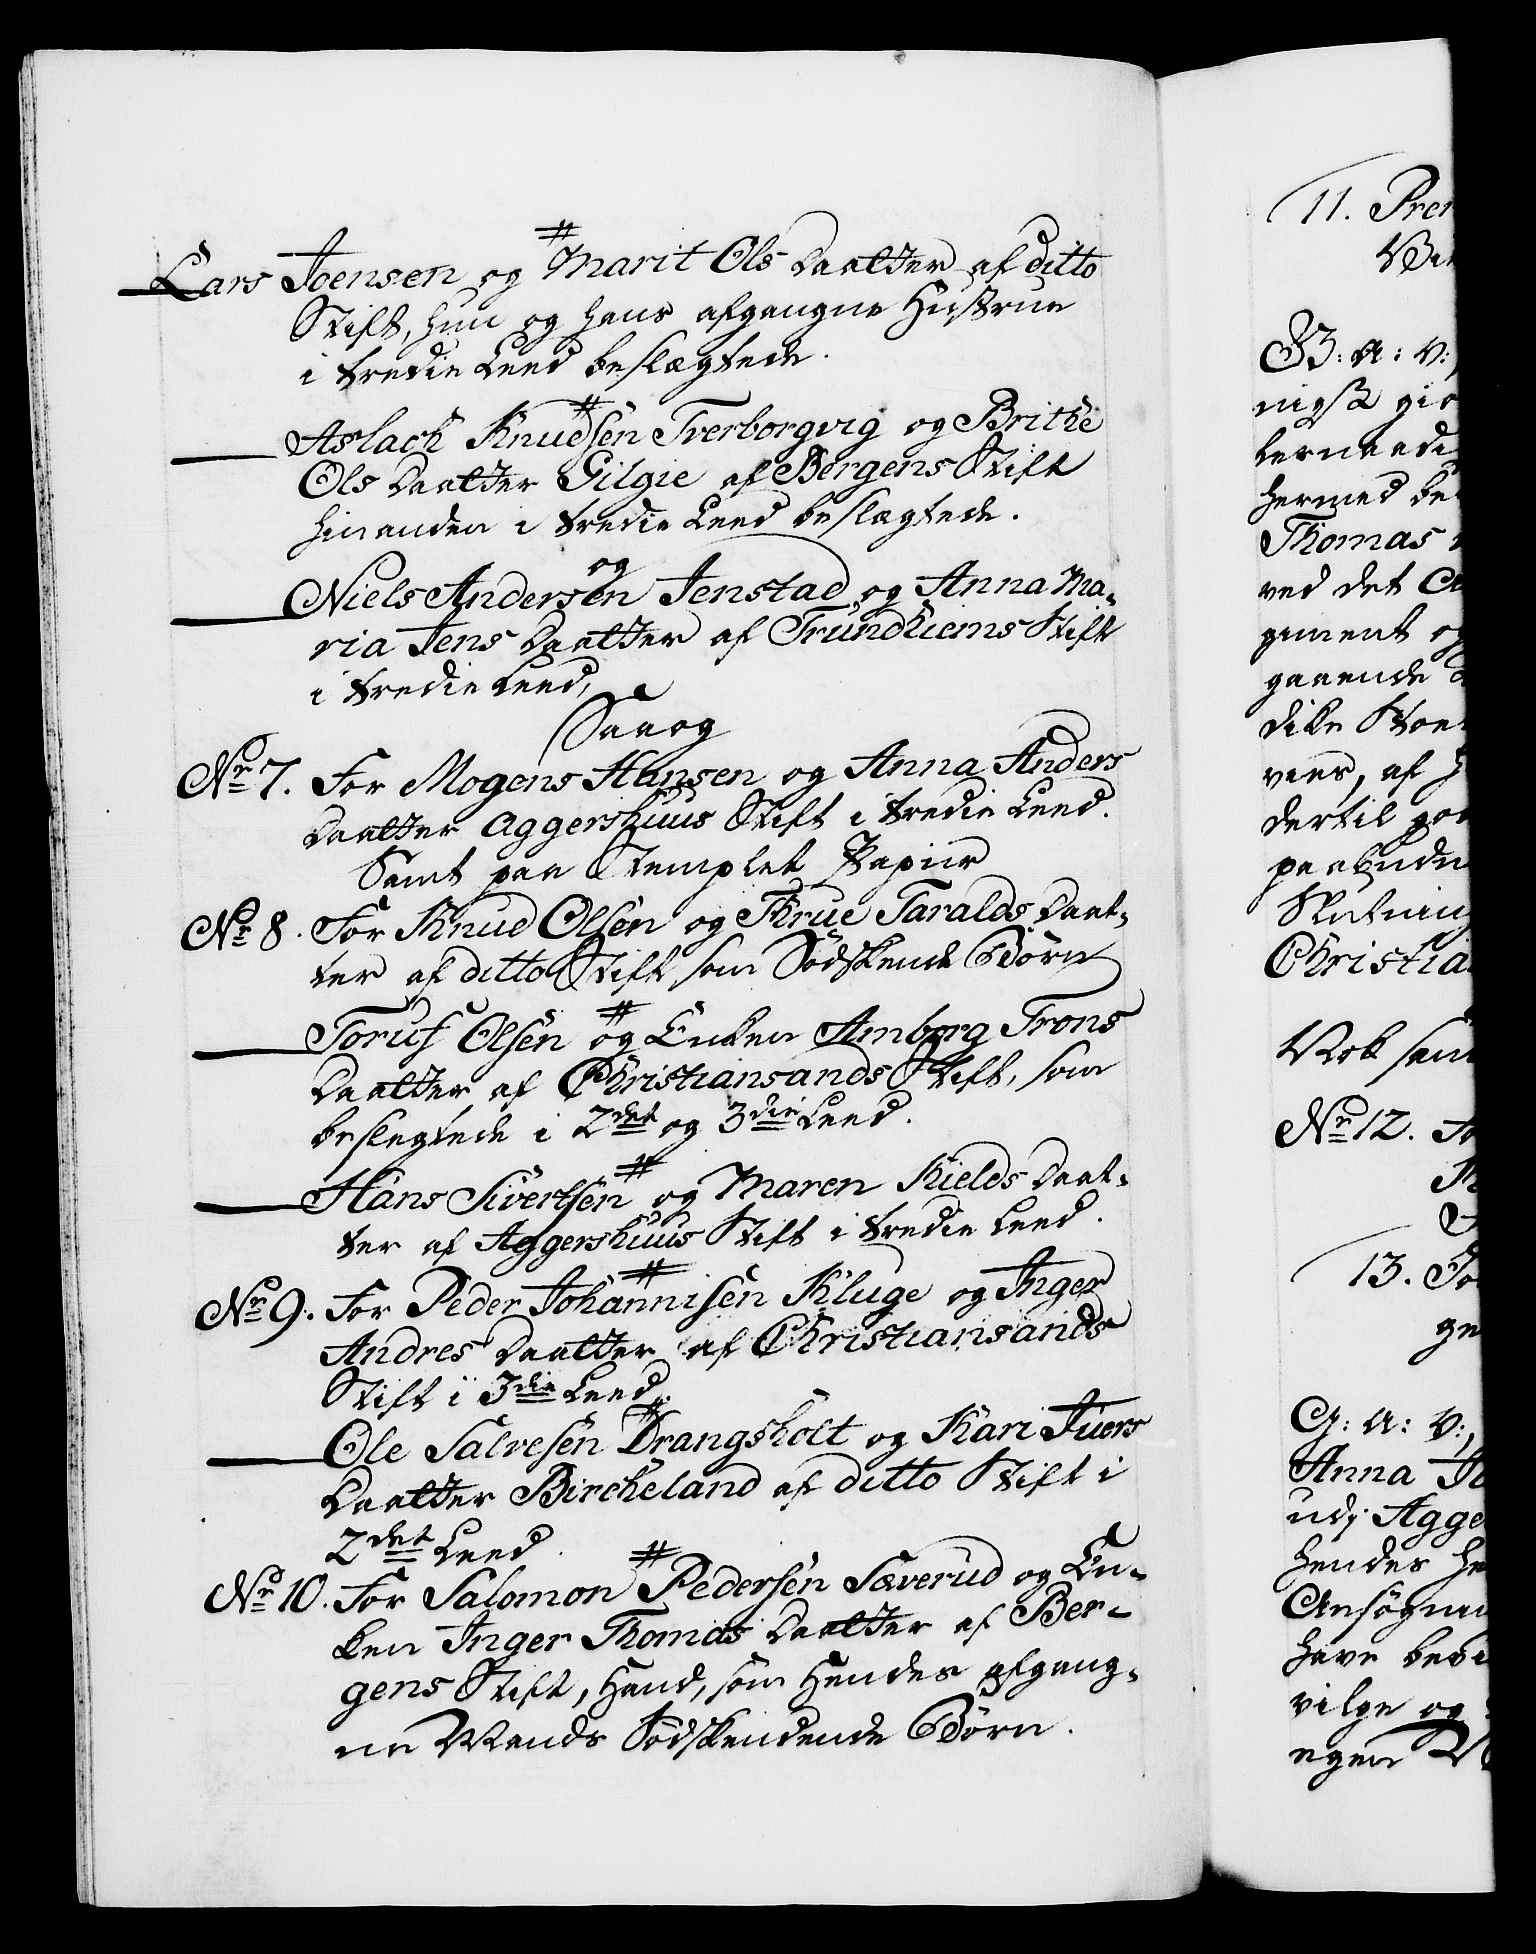 #
Lars Joensen og Marit Ols Daatter af ditto
Stift, hun og hans afgangne Hustrue
i tredie Leed beslægtede.
#
Aslach Knudsen Tverborgvig og Brithe
Ols Daatter Gilgie af Bergens Stift
hinanden i tredie Leed beslægtede.
og
Niels Andersen Jenstad og Anna Ma-
ria Jens Daatter af Trundhiems Stift
i tredie Leed,
Saaog
No 7. For Mogens Hansen og Anna Anders
Daatter Aggershuus Stift i tredie Leed.
Samt paa Stemplet Papiir
No 8. For Knud Olsen og Thrue Taralds Daat-
ter af ditto Stift som Södskende Börn
#
Toruf Olsen og Enken Amborg Trons
Daatter af Christiansands Stift, som
beslegtede i 2det og 3die Leed.
#
Hans Sivertsen og Maren Kields Daat-
ter af Aggershuus Stift i tredie Leed.
#
No 9. For Peder Johannisen Kluge og Inger
Andres Daatter af Christiansands
Stift i 3die Leed.
#
Ole Salvesen Drangsholt og Kari Juers
Daatter Birckeland af ditto Stift i
2det Leed.
#
No 10. For Salomon Pedersen Sæverud og En-
ken Inger Thomas Daatter af Ber-
gens Stift, Hand, som Hendes afgang-
ne Mands Södskendende Börn.
11. Pre
B: A: V:
nigst gio
hermed be
Thomas
ved det
giment og
gaaende
vies, af
dertil go
paabude
Christia
Nok sam
No 12. Fo
13. Fo
ge
G: A: V:,
Anna
udj Agge
hendes he
Ansögni
have bevi
vilge og
egen